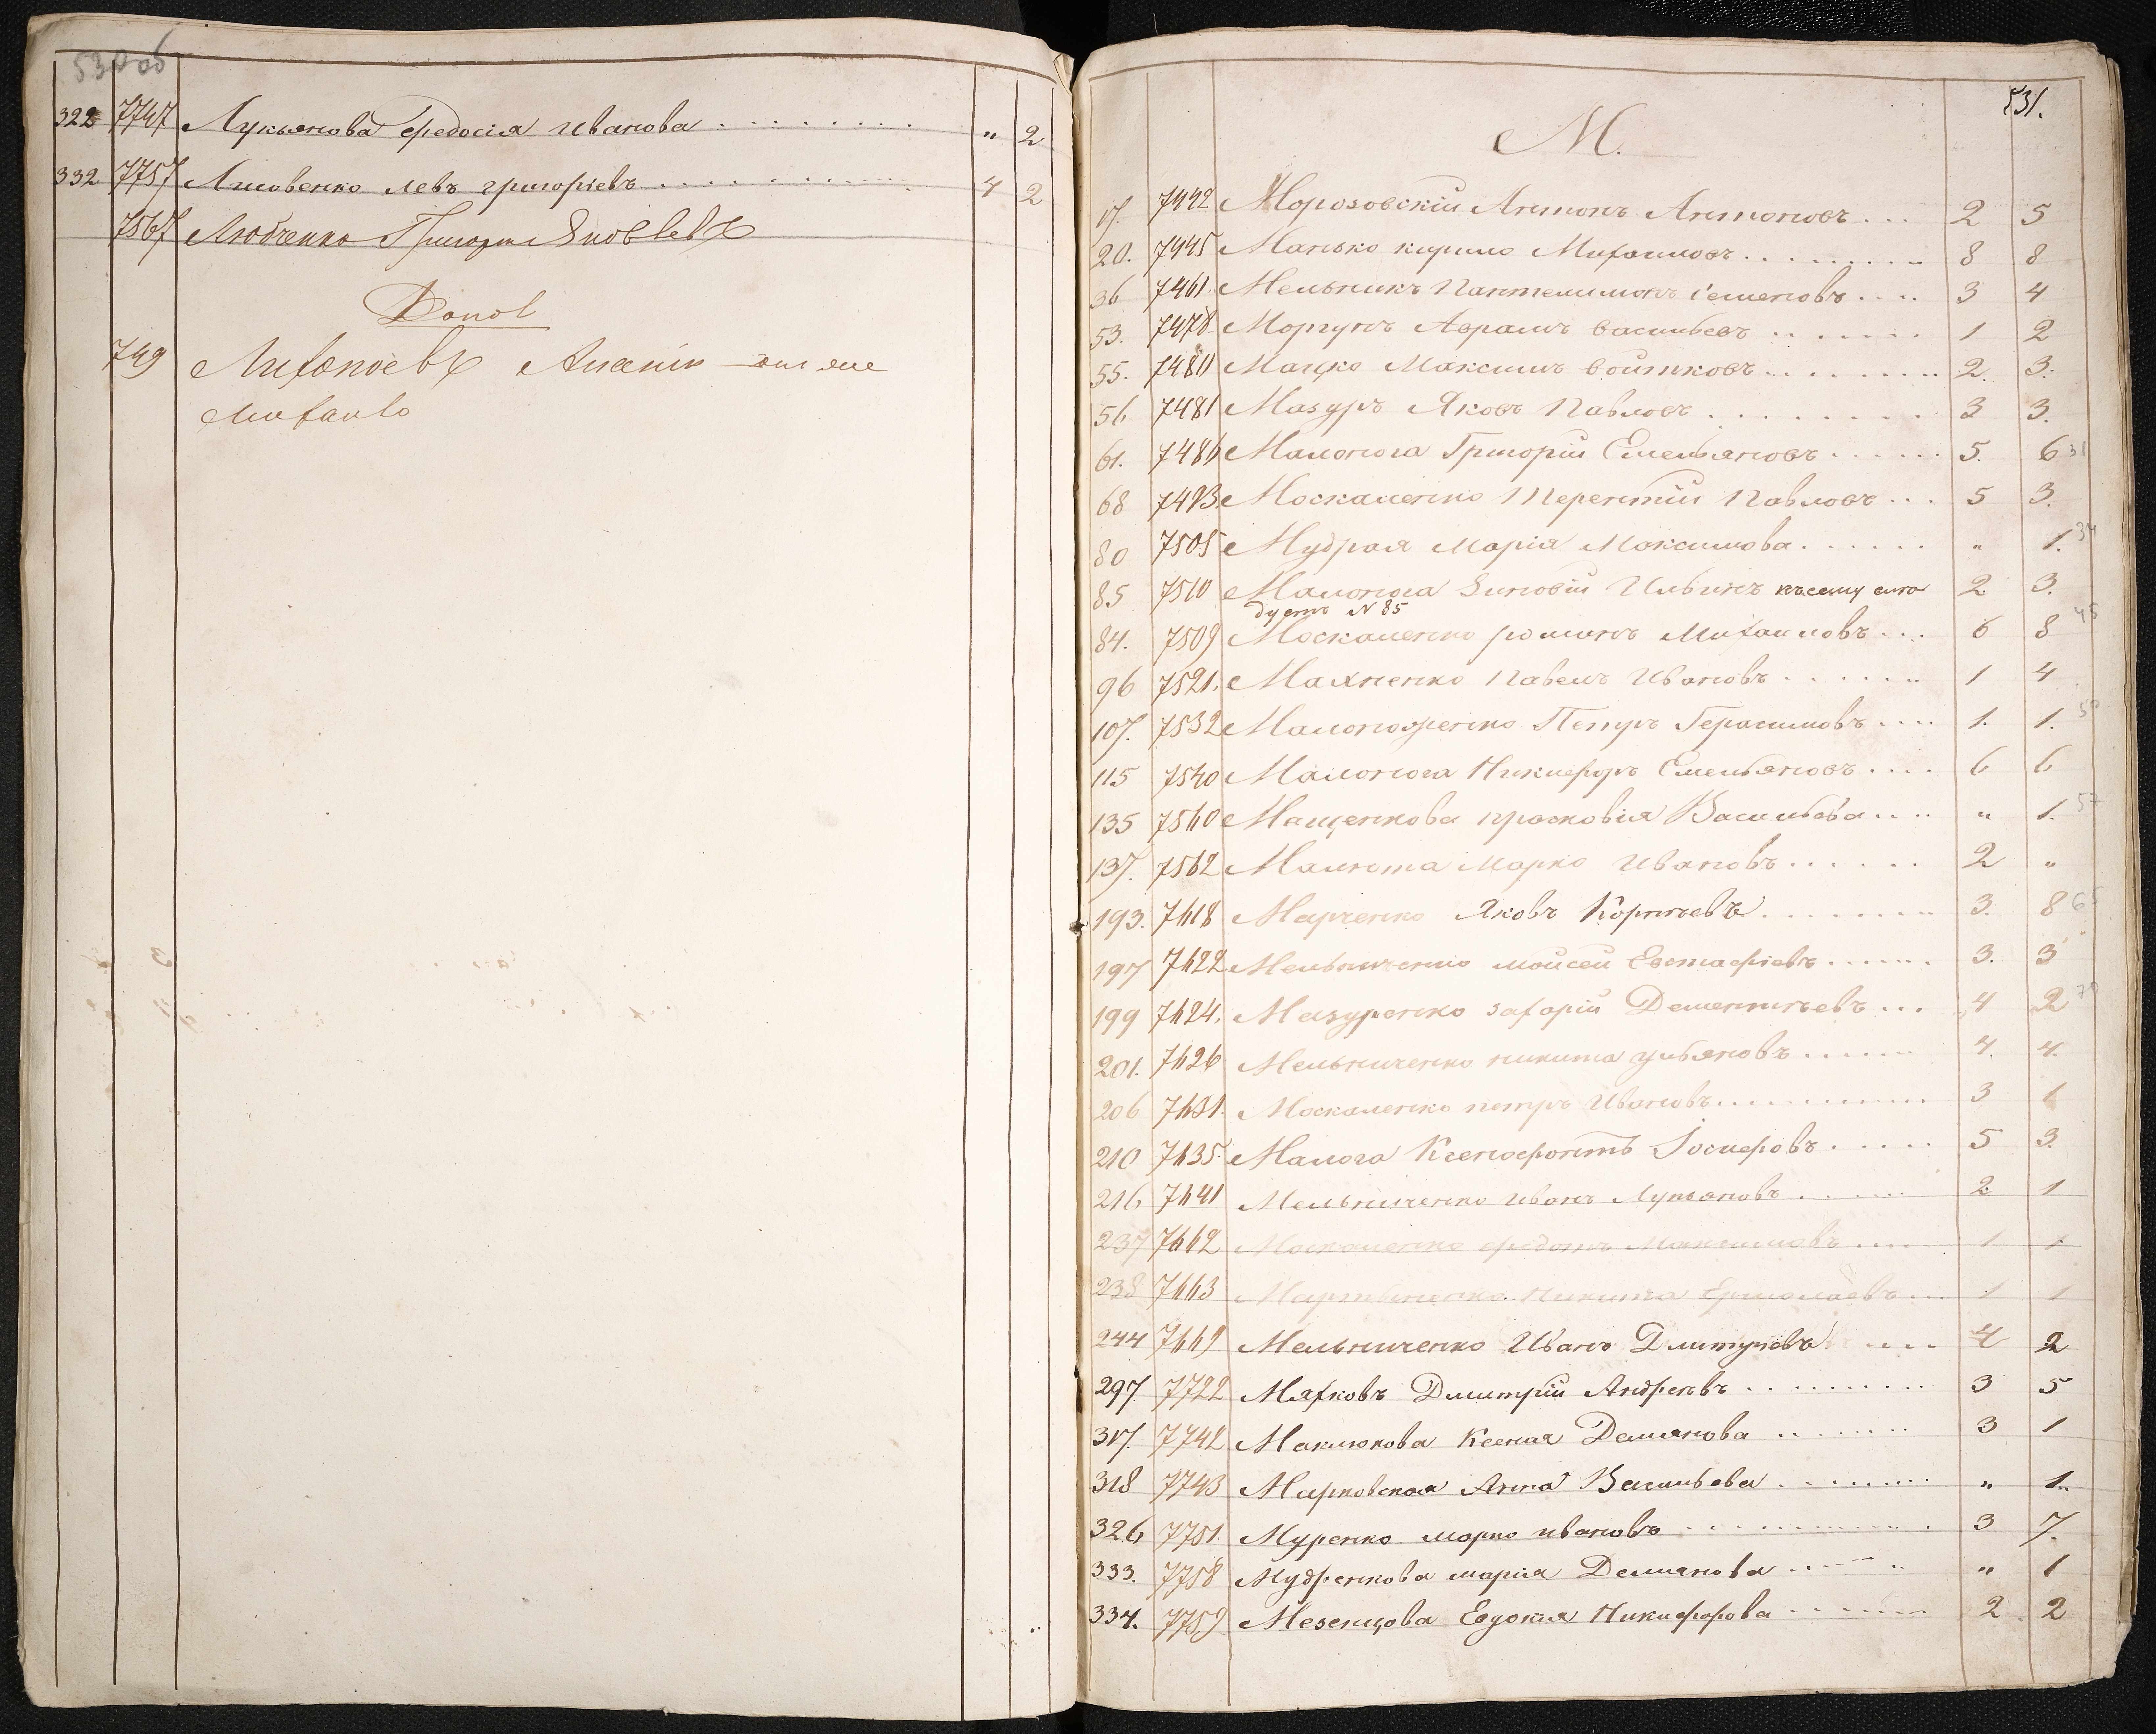 530об
322 7747 Лукьянова Федосія Иванова . . . . . . . . . " 2
332 7757 Лисовенко Левъ Григоріевъ . . . . . . . . . . 4 2
7567 Любченко Григорій Яковлевъ
749
531.
М.
17. 7442 Морозовскій Антонъ Антоновъ . . . 2 5
20. 7445 Манько Кирило Михаиловъ . . . . . . . . . 8 8
36 7461. Мельникъ Пантелимонъ Семеновъ . . . . 3 4
53. 7478 Моргунъ Аврамъ Васильевъ . . . . . . . 1 2
55. 7480 Мацко Максимъ Войтковъ . . . . . . . . 2. 3.
56 7481 Мазуръ Яковъ Павловъ . . . . . . . . . 3 3.
61. 7486 Малонога Григорій Емельяновъ . . . . . . 5. 6 31
68 7493. Москаленко Терентій Павловъ . . . 5 3.
80 7505 Мудрая Марія Максимова . . . . . . " 1. 34
85 7510 Малонога Зиновій Ильинъ къ сему слѣ 2 3.
дуетъ N 85
84. 7509 Москаленко Романъ Михаиловъ . . . 6 8 45
96 7521. Махненко Павелъ Ивановъ . . . . . . . 1 4
107. 7532 Петръ Герасимовъ . . . . 1. 1. 50
115 7540 Малонога Никифоръ Емельяновъ . . . . 6 6
135 7560 Мащенкова Прасковія Васильева . . . . " 1. 57
137. 7562 Малюта Марко Ивановъ . . . . . . 2 "
193. 7618 Марченко Яковъ Корнѣевъ . . . . . . . . 3. 8 65
197 7622 Мельниченко Мойсей Евстафіевъ . . . . . . 3. 3
199 7624. Мазуренко Захарій Дементьевъ . . . 4 2 70
201. 7626 Мельниченко Никита Ульяновъ . . . . . . 4. 4.
206 7631. Москаленко Петръ Ивановъ . . . . . . . . . . . 3 1
210 7635. Малога Ксенофонтъ Іосифовъ . . . . . 5 3.
216 7641 Мельниченко Иванъ Лукьяновъ . . . . . . 2 1
237 7662 Москаленко Федотъ Максимовъ . . . . 1 1
238 7663 Мартыненко Никита Ермолаевъ . . . 1 1
244 7669 Мельниченко Иванъ Дмитріевъ . . . . 4 2
297. 7722 Мяхковъ Дмитрій Андреевъ . . . . . . . . . . 3 5
317. 7742 Маклюкова Ксенія Демянова . . . . . . . . 3 1
318 7743 Марковская Анна Васильева . . . . . . . . . " 1.
326 7751. Муренко Марко Ивановъ . . . . . . . . . . . . 3 7.
333. 7758 Мудренкова Марія Демянова . . . . . . " 1
334. 7759 Мезенцова Евдокія Никифорова . . . . . . . 2 2